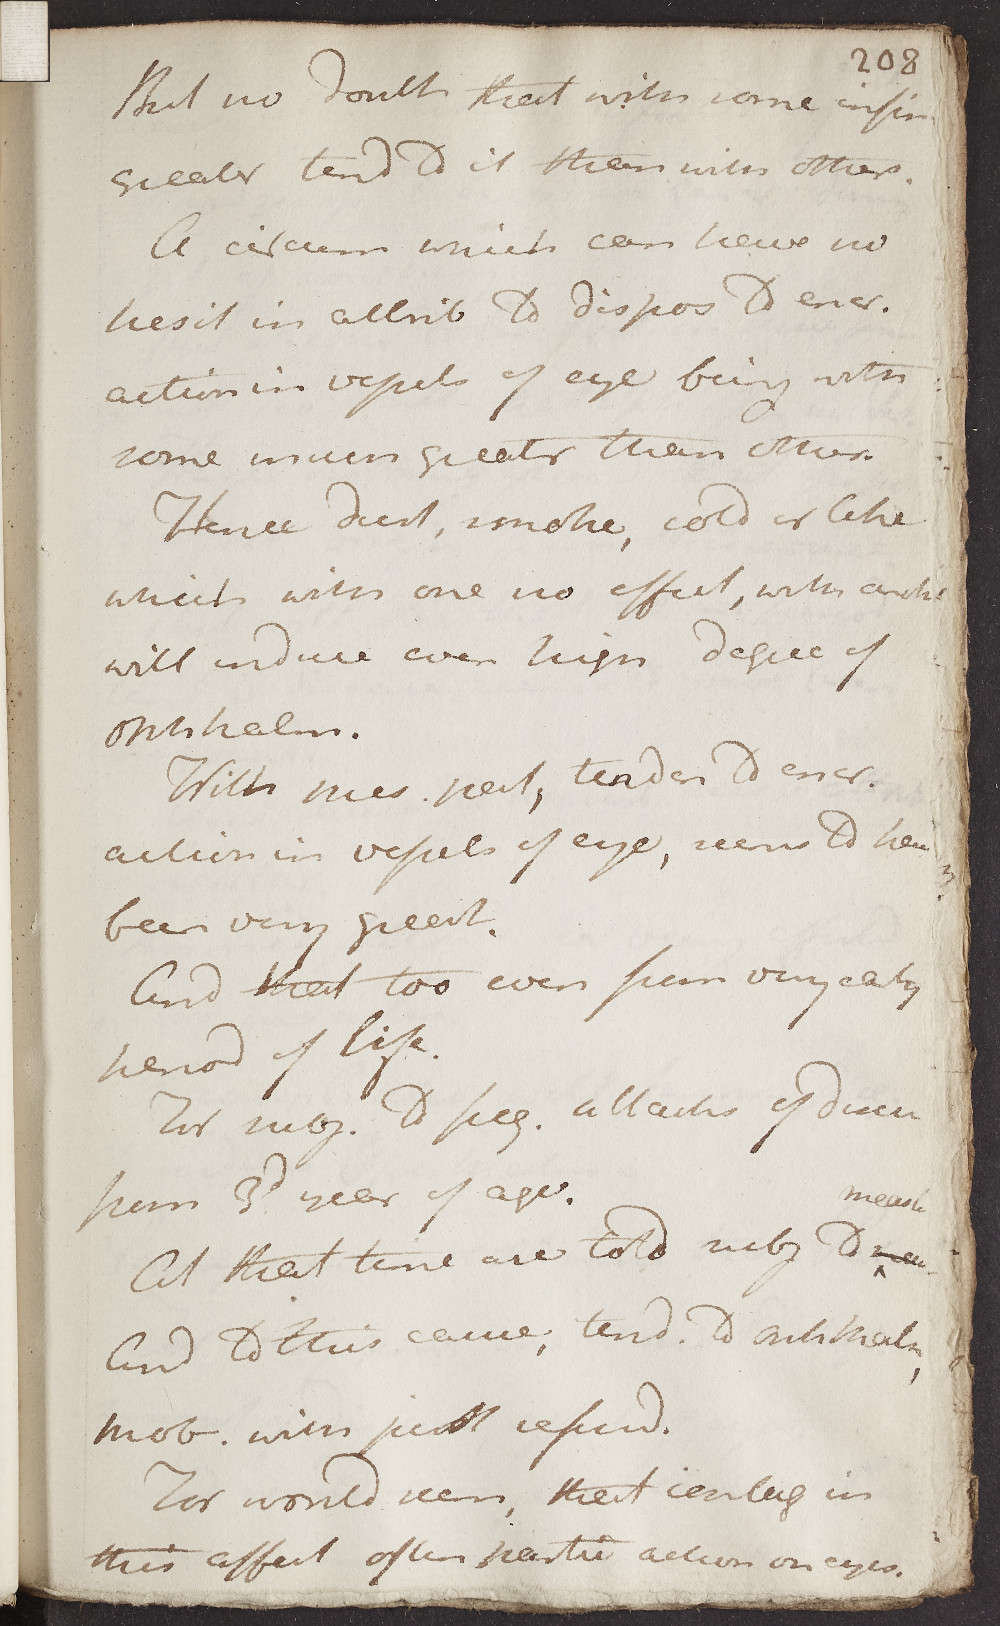 208
But no doubt that with some infin
greater tend to it than with others.
A circum which can have no
hesit in attrib to dispos to encr.
action in vessels of eye being with
some much greater than others.
Hence dust, smoke, cold or like
which with one no effect, with anoth
will induce even high degree of
Ophthalm.
With pres. pat, tenden to encr.
action in vessels of eye, seems to hav
been very great.
And that too even from very early
period of life.
For subj. to freq. attacks of
from 3d year of age.
measl
At that time are told subj to
And to this cause, tend. to ophthalm,
prob. with just referrd.
For would seem, that contag in
this affect often partic action on eyes.